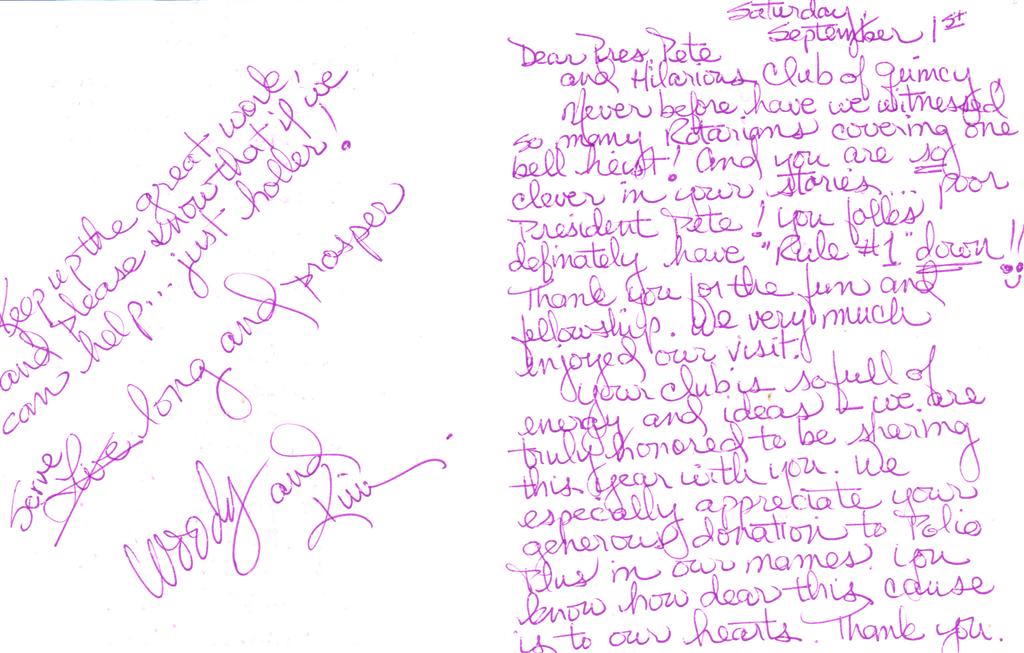 Saturday,
September 1st
Dear Pres. Pete
and Hilarious Club of Quincy
Never before have we witnessed
so many Rotarians covering one
bell heist! And you are so
clever in your stories... poor
President Pete! you folks
definately have "Rule #1" down!!
Thank you for the fun and
fellowship. We very much
enjoyed our visit.
Your club is so full of
energy and ideas - we are
truly honored to be sharing
this year with you. We
especially appreciate your
generous donation to Polio
Plus in our names. You
know how dear this cause
is to our hearts. Thank you.
Keep up the great work,
and please know that if we
can help... just holler!
Serve
Live long and prosper
Woody and
Kim